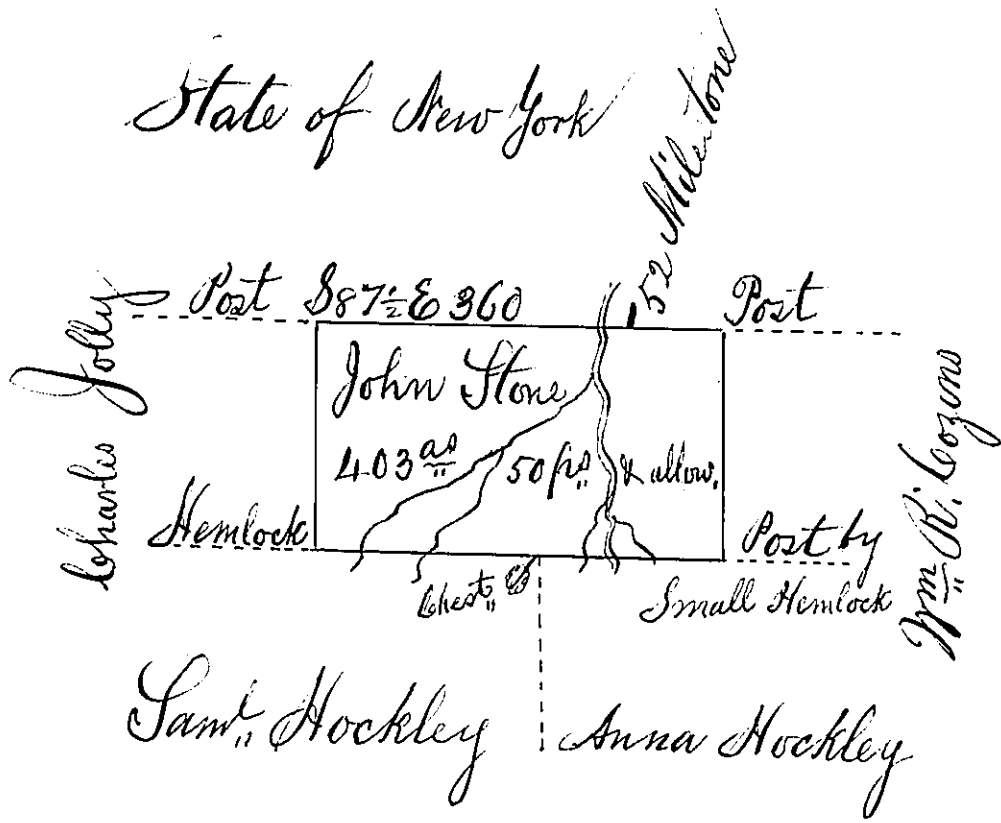 State of New York
52 Milestone
Charles Jolly
Post S 87½ E 360
Post
John Stone
403 as 50 ps & allow.
Hemlock
Post by
Small Hemlock
Chest
Wm R. Cozins
Saml. Hockley
Anna Hockley